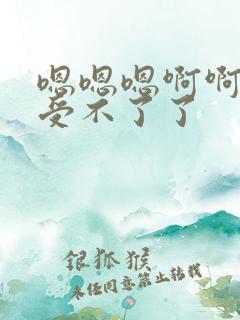 嗯嗯嗯啊啊
受不了了
银狐猴
未经同意禁止转载